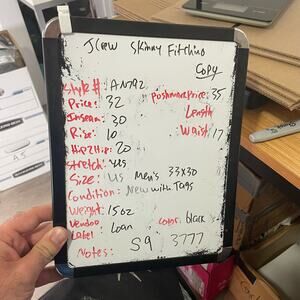 JCrew Skinny Fit Chino
Copy
Style #: AN792
Price: 32 Poshmark Price: 35
Inseam: 30 Length:
Rise: 10 Waist: 17
Hip2Hip: 20
Stretch: Yes
Size: US Men's 33x30
Condition: New with Tags
Weight: 15oz Color: black
Vendoo Label: Loan
Notes: S9 3777